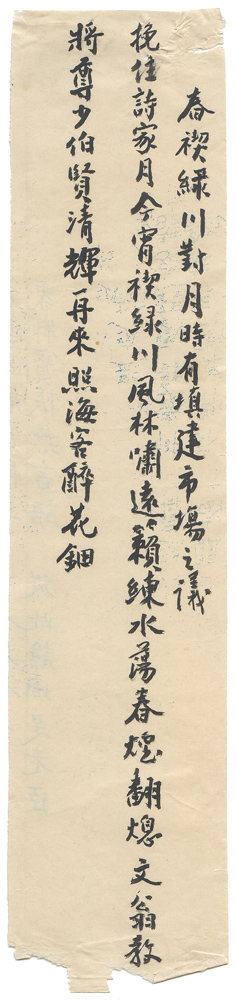 春禊綠川對月時有填建市場之議
挽住詩家月今宵禊綠川風林嘯遠籟練水蕩春煙翻媳文翁教
將尊少伯賢清輝再來照海客醉花鈿